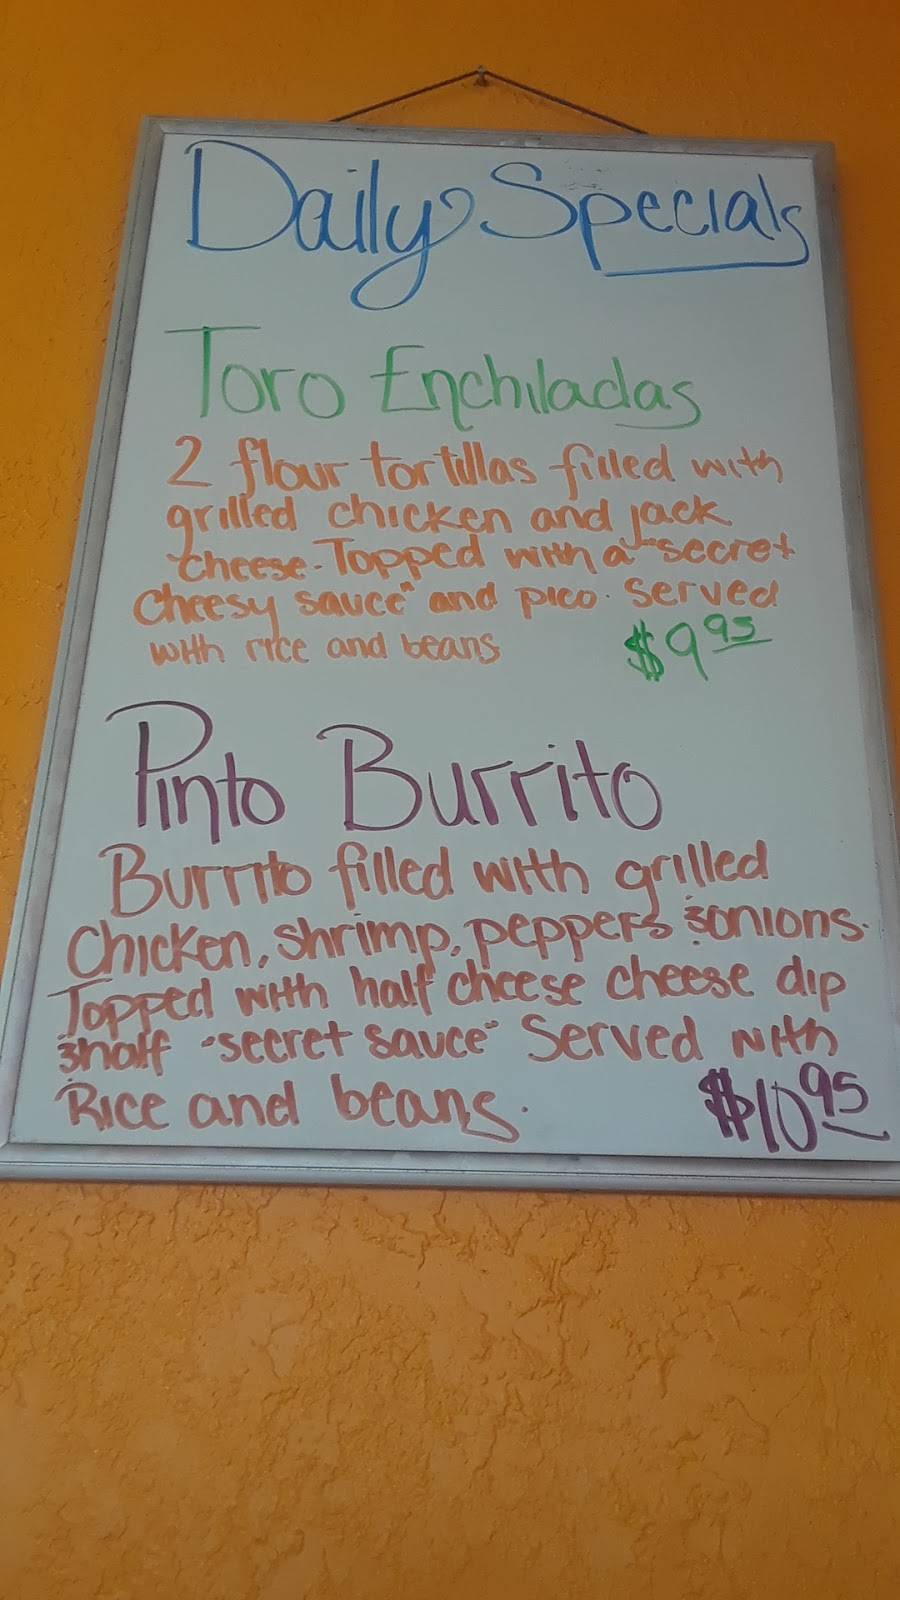 Daily Specials
Toro Enchiladas
2 flour tortillas filled with
grilled chicken and jack
cheese. Topped with a "secret
cheesy sauce" and pico. Served
with rice and beans
$9.95
Pinto Burrito
Burrito filled with grilled
Chicken, shrimp, peppers & onions.
Topped with half cheese cheese dip
& half "secret sauce" Served with
Rice and beans.
$10.95